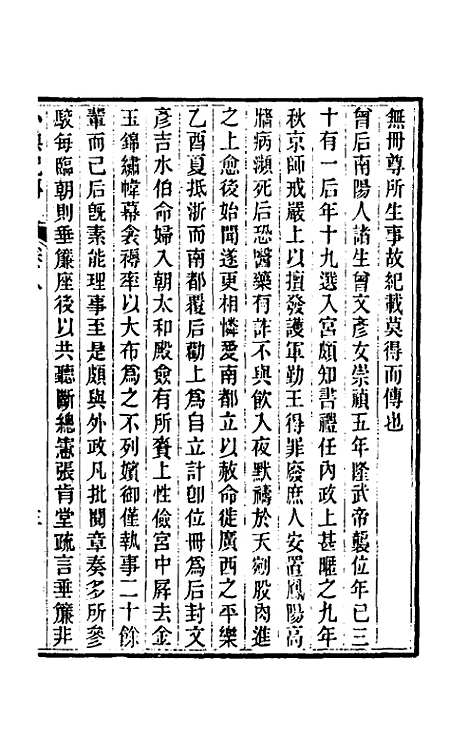 無冊尊所生事故紀載莫得而傳也
曾后南陽人諸生曾文彥女崇禎五年隆武帝襲位年已三
十有一后年十九選入宮頗知書禮任內政上甚暱之九年
秋京師戒嚴上以擅發護軍勤王得罪廢庶人安置鳳陽高
牆病瀕死后恐醫藥有詐不與飲人夜默禱於天剜股肉進
之上愈後始聞遂更相憐愛南都立以赦命徙廣西之平樂
乙酉夏抵浙而南都覆后勸上為自立計卽位冊為后封文
彥吉水伯命婦入朝太和殿僉有所賚上性儉宮中屏去金
玉錦繡幃幕衾褥率以大布為之不列嬪御僅執事二十餘
輩而已后旣素能理事至是頗與外政凡批閱章奏多所參
駮每臨朝則垂簾座後以共聽斷總憲張肯堂疏言垂簾非